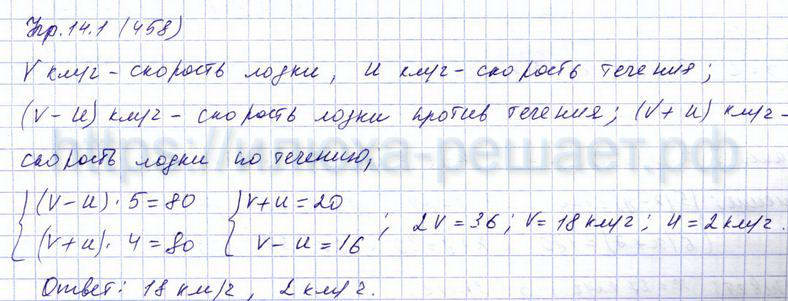 Упр. 14.1 (458)
V км/ч - скорость лодки, U км/ч - скорость течения;
(V - U) км/ч - скорость лодки против течения; (V + U) км/ч -
скорость лодки по течению;
{(V - U) · 5 = 80 {V + U = 20
{(V + U) · 4 = 80 {V - U = 16 ; 2V = 36; V = 18 км/ч; U = 2 км/ч.
Ответ: 18 км/ч, 2 км/ч.